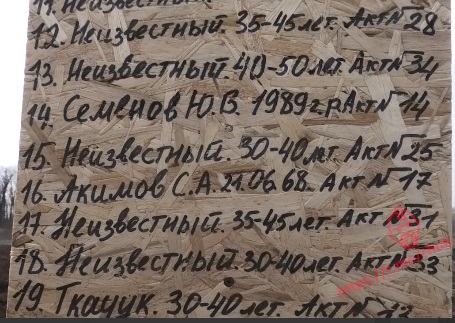 11. Неизвестный.
12. Неизвестный. 35-45 лет. Акт № 28
13. Неизвестный. 40-50 лет. Акт № 34
14. Семенов Ю.В. 1989 г.р Акт № 14
15. Неизвестный. 30-40 лет. Акт № 25
16. Акимов С.А. 21.06.68. Акт № 17
17. Неизвестный. 35-45 лет. Акт № 31
18. Неизвестный. 30-40 лет. Акт № 33
19. Ткачук. 30-40 лет. Акт №